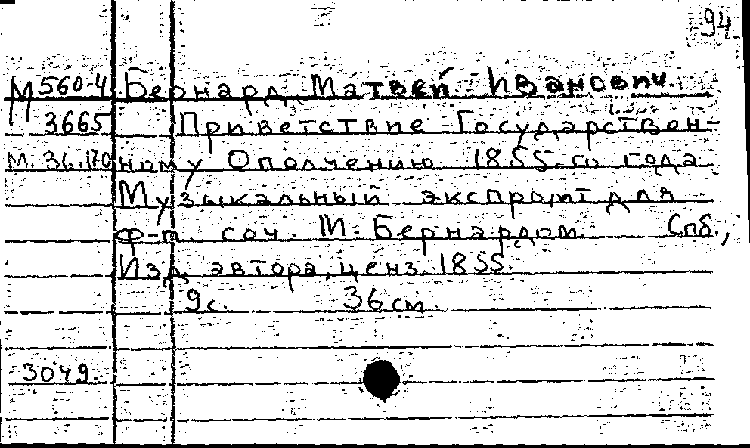 94
М 560.4 Бернард, Матвей Иванович
3665 Приветствие Государствен-
М. 36.170 ному Ополчению 1855-го года
Музыкальный экспромт для
ф-п. соч. М. Бернардом. Спб.,
Изд. автора, ценз. 1855.
9с. 36 см.
3049.